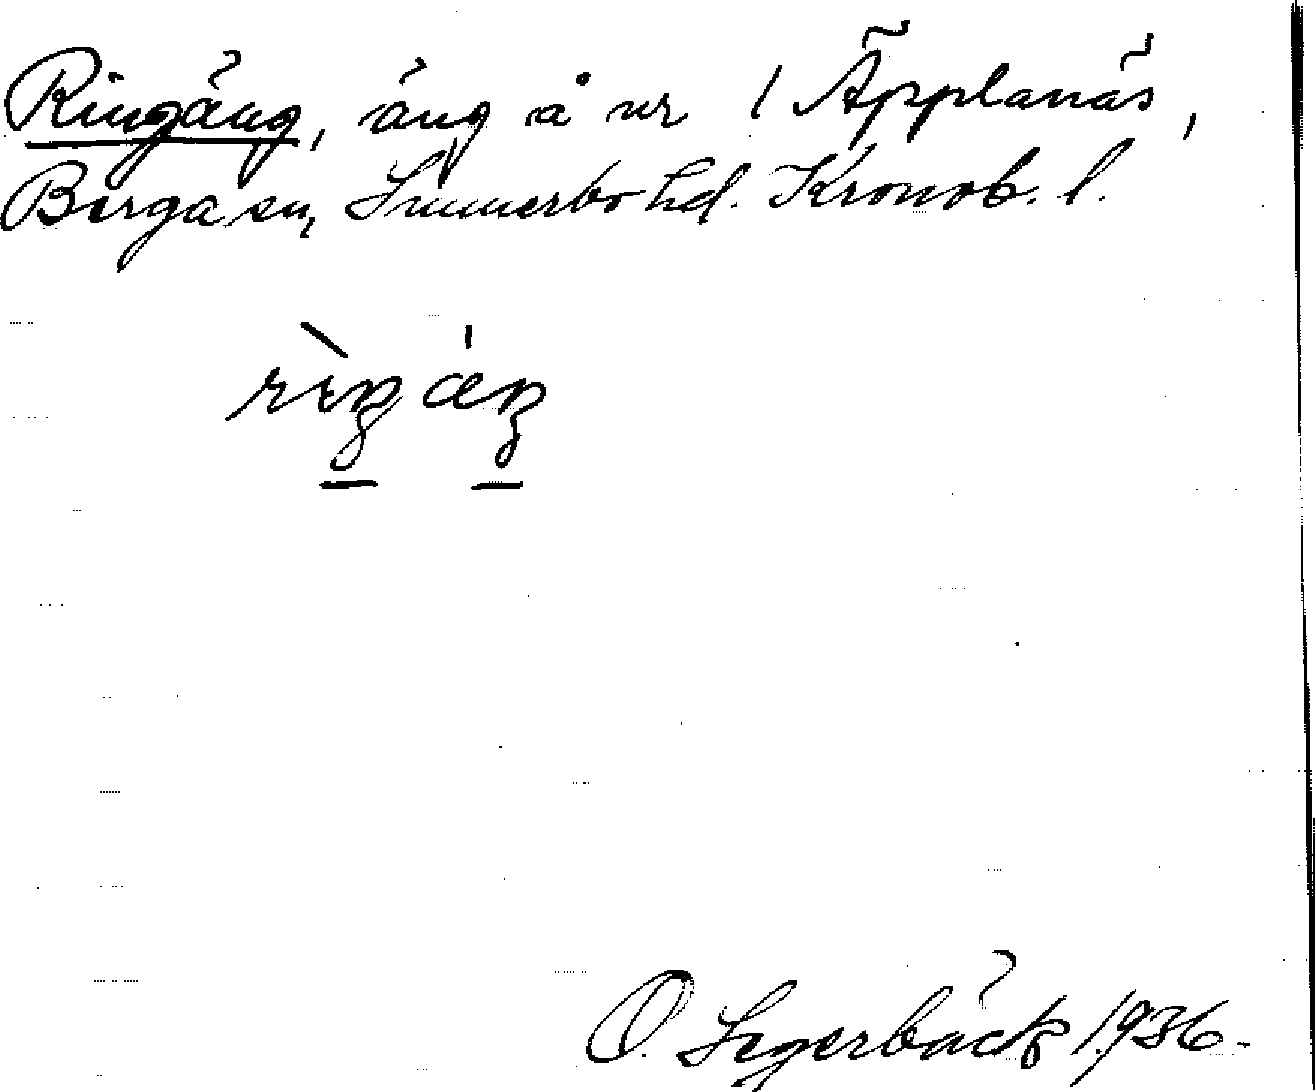 Ringäng, äng å nr 1 Äpplanäs,
Berga sn, Sunnerbo hd. Kronob. l.
O. Segerbäck 1936.